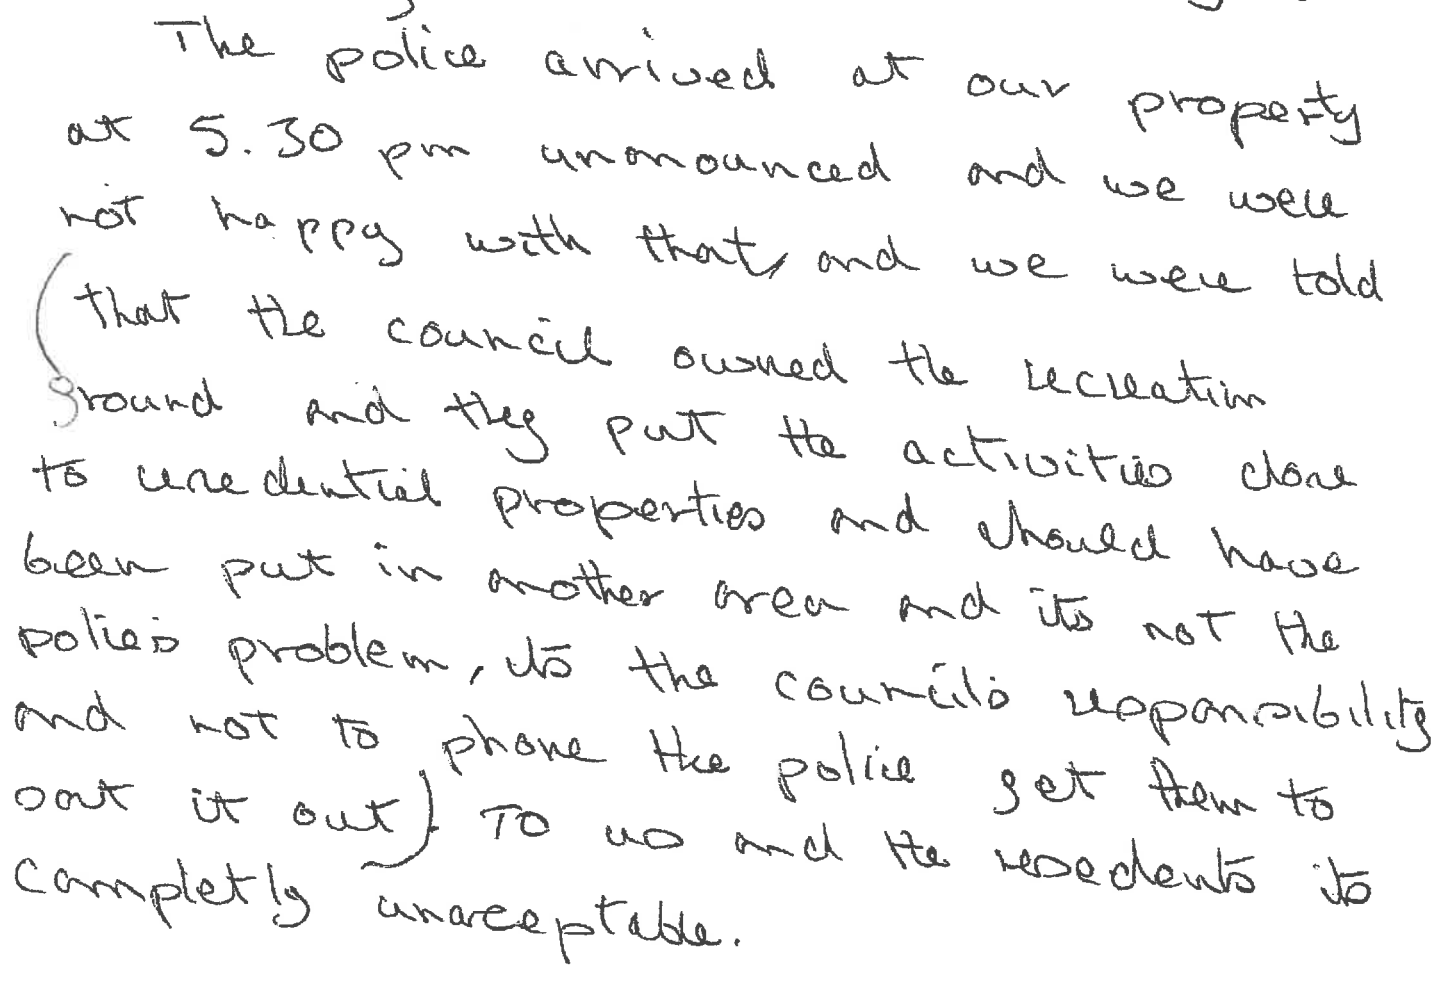 The police arrived at our property
at 5.30 pm unanounced and we were
not happy with that, and we were told
(that the council owned the recreation
ground and they put the activities close
to residential properties and should have
been put in another area and its not the
polices problem, its the councils responsibility
and not to phone the police get them to
sort it out). To us and the resedents its
completly unaceptable.